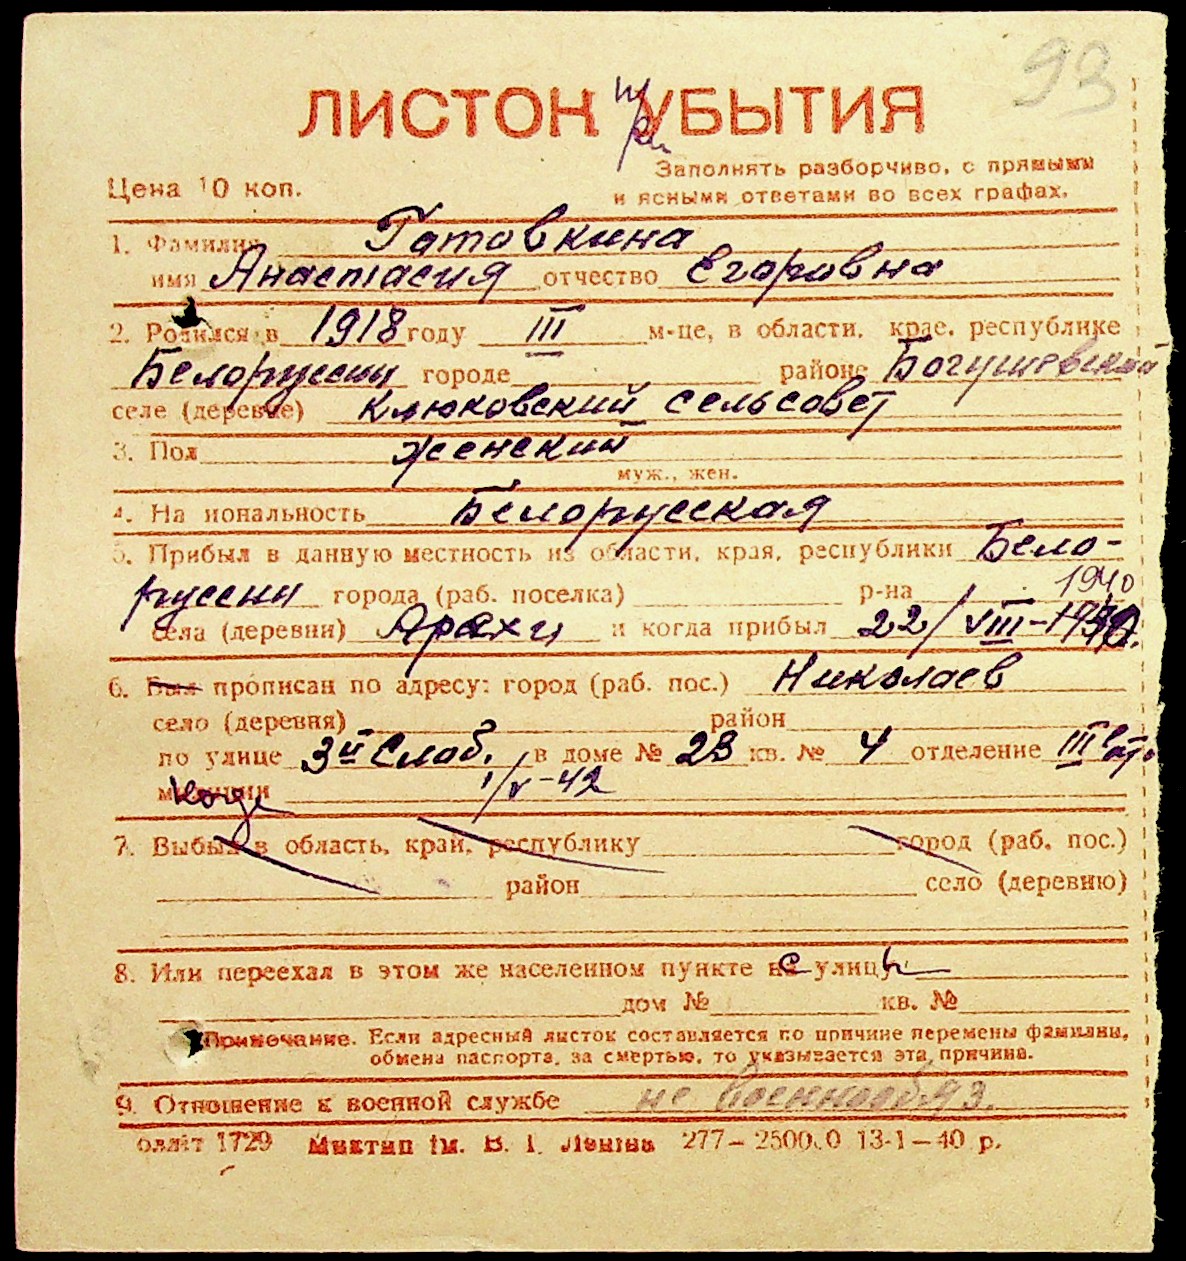 93
ЛИСТОК при УБЫТИЯ
Заполнять разборчиво, с прямыми
Цена 10 коп.
и ясными ответами во всех графах.
1. Фамилия Гатовкина
имя Анастасия отчество Егоровна
2. Родился в 1918 году III м-це, в области, крае, республике
Белоруссии городе районе Богушевский
селе (деревне) Клюковский сельсовет
3. Пол женский
муж., жен.
4. Национальность Белорусская
5. Прибыл в данную местность из области, края, республики Бело-
руссии города (раб. поселка) р-на 1940
села (деревни) и когда прибыл 22/VIII-1940.
6. Был прописан по адресу: город (раб. пос.) Николаев
село (деревня) район
по улице 3й Слоб. в доме № 23 кв. № 4 отделение III
милиции 1/V-42
7. Выбыл в область, край, республику город (раб. пос.)
район село (деревню)
8. Или переехал в этом же населенном пункте с улицы
дом № кв. №
Примечание. Если адресный листок составляется по причине перемены фамилии,
обмена паспорта, за смертью, то указывается эта причина.
9. Отношение к военной службе не военнообяз.
облліт 1729 Миктип ім. В. І. Леніна 277— 13-1—40 р.